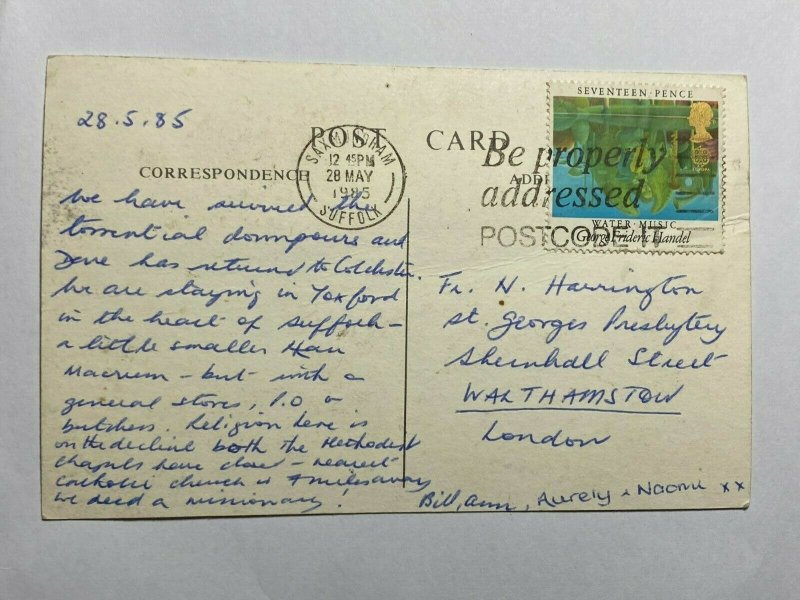 28.5.85
POST CARD
CORRESPONDENCE
ADD
SAXMUNDHAM
12 45PM
28 MAY
1985
SUFFOLK
Be properly
addressed
POSTCODE IT
SEVENTEEN·PENCE
EUROPA
WATER·MUSIC
George Frideric Handel
We have survived the
torrential downpours and
Dave has returned to Colchester.
We are staying in Yoxford
in the heart of Suffolk –
a little smaller than
– but – with a
general stores, P.O &
butchers. Religion here is
on the decline both the Methodist
chapels have closed – nearest
catholic church is 4 miles away
we need a missionary!
Fr. N. Harrington
St. Georges Presbytery
Shernhall Street
WALTHAMSTOW
London
Bill, Ann, Aurely & Naomi xx